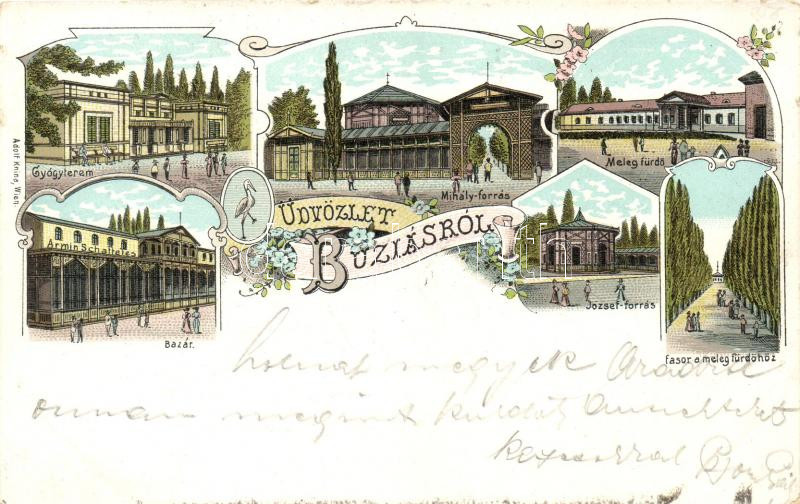 Gyógyterem
Mihály-forrás
Meleg fürdő
Adolf Knina, Wien
ÜDVÖZLET
BUZIÁSRÓL
Armin Schalteres
Bazár.
József-forrás
fasor a meleg fürdőhöz
holnap megyek Aradra
onnan megint küldök